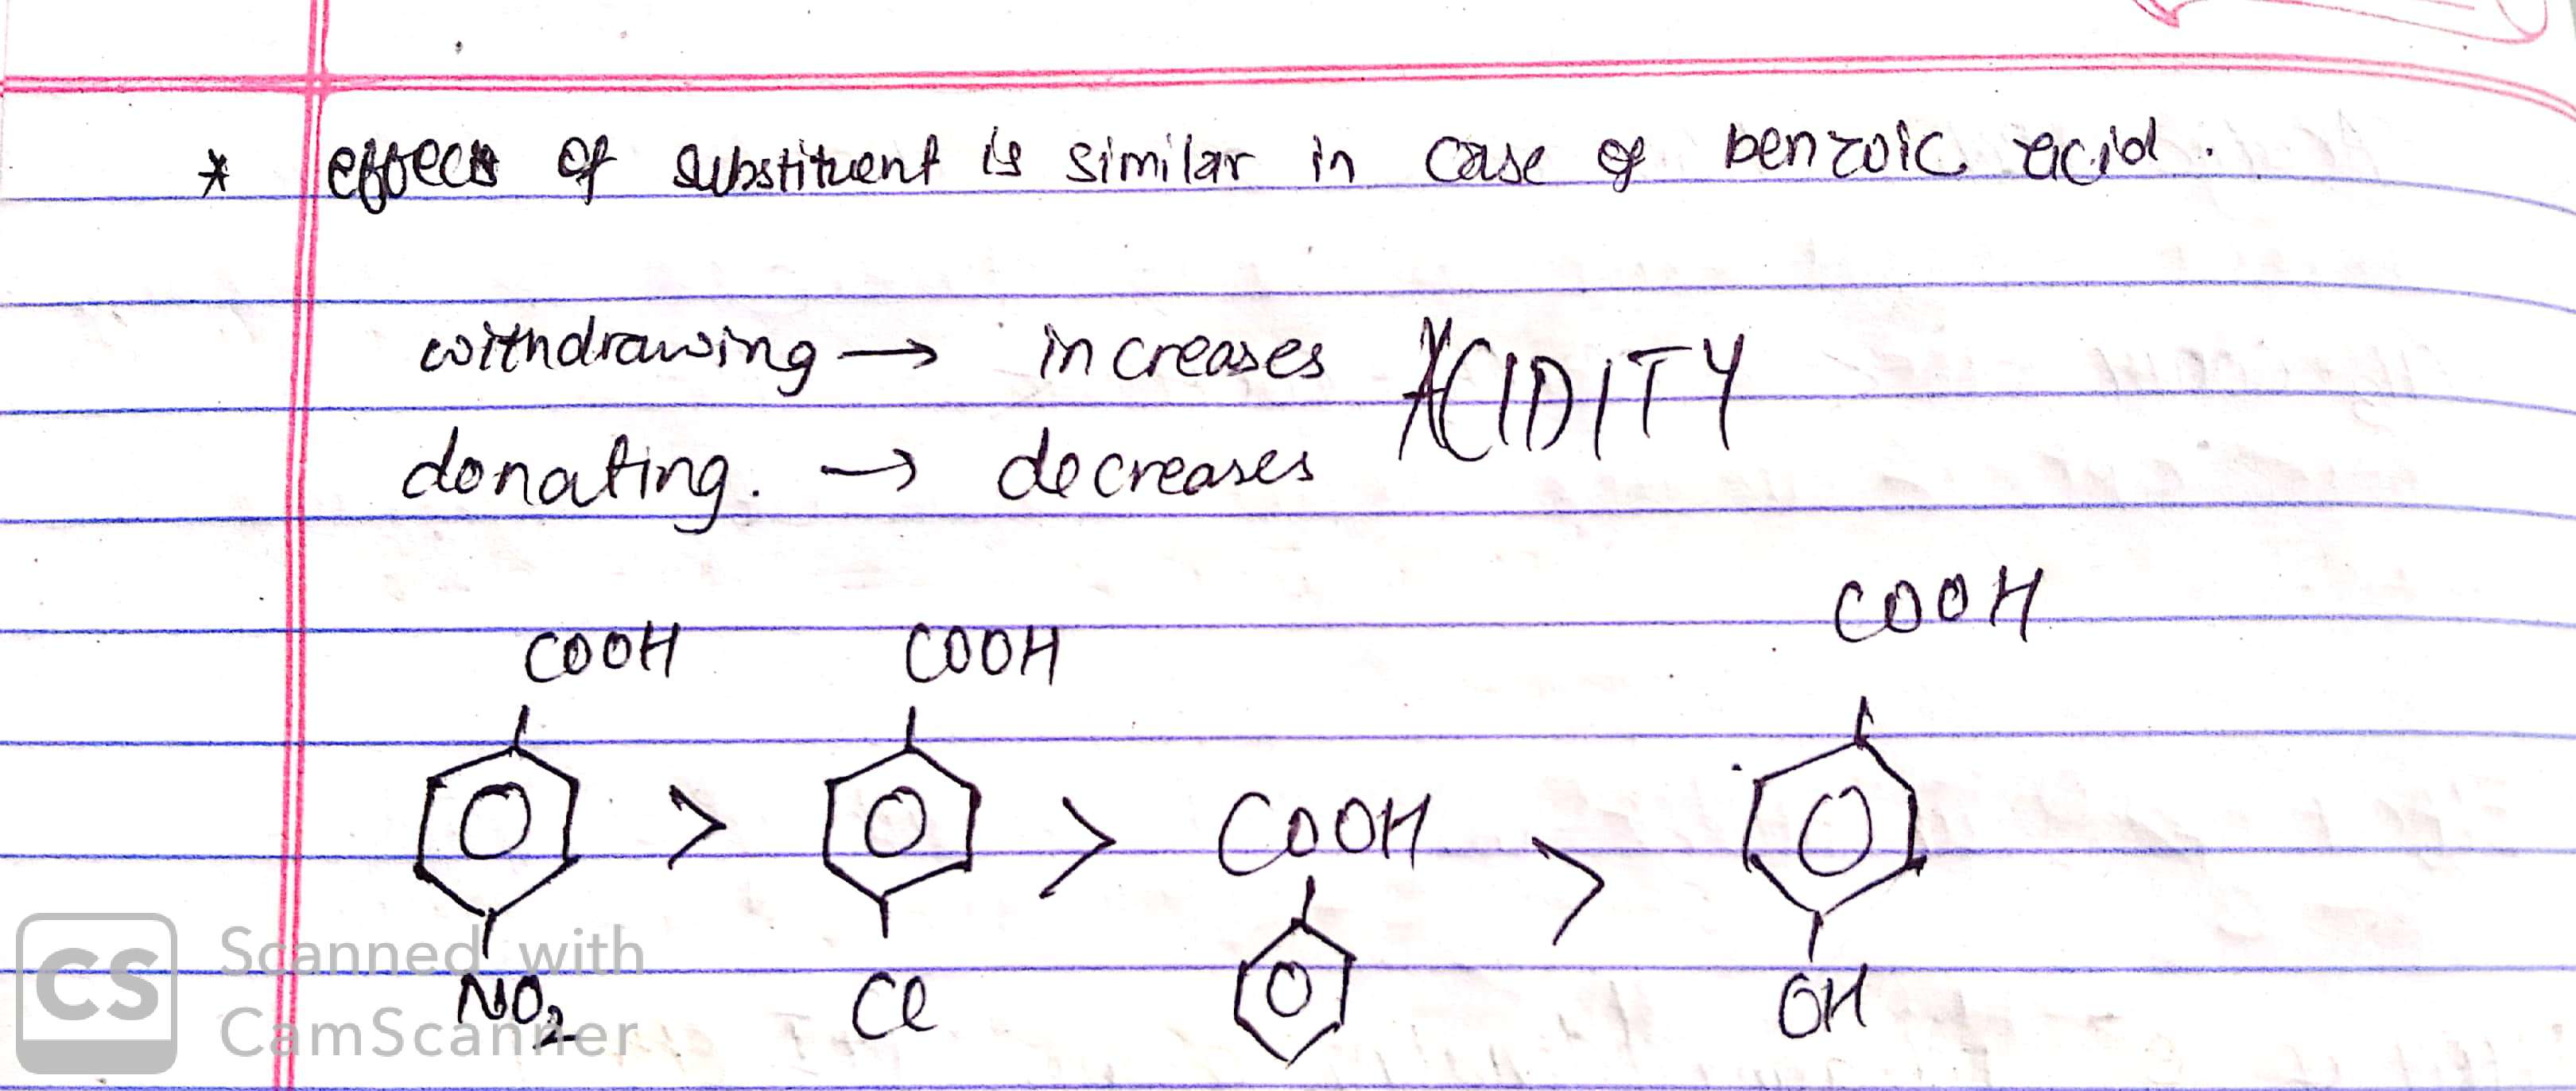 * effects of substituent is similar in case of benzoic acid.
withdrawing → increases ACIDITY
donating. → decreases
COOH COOH COOH
> > COOH >
NO₂ Cl OH
CS Scanned with
CamScanner